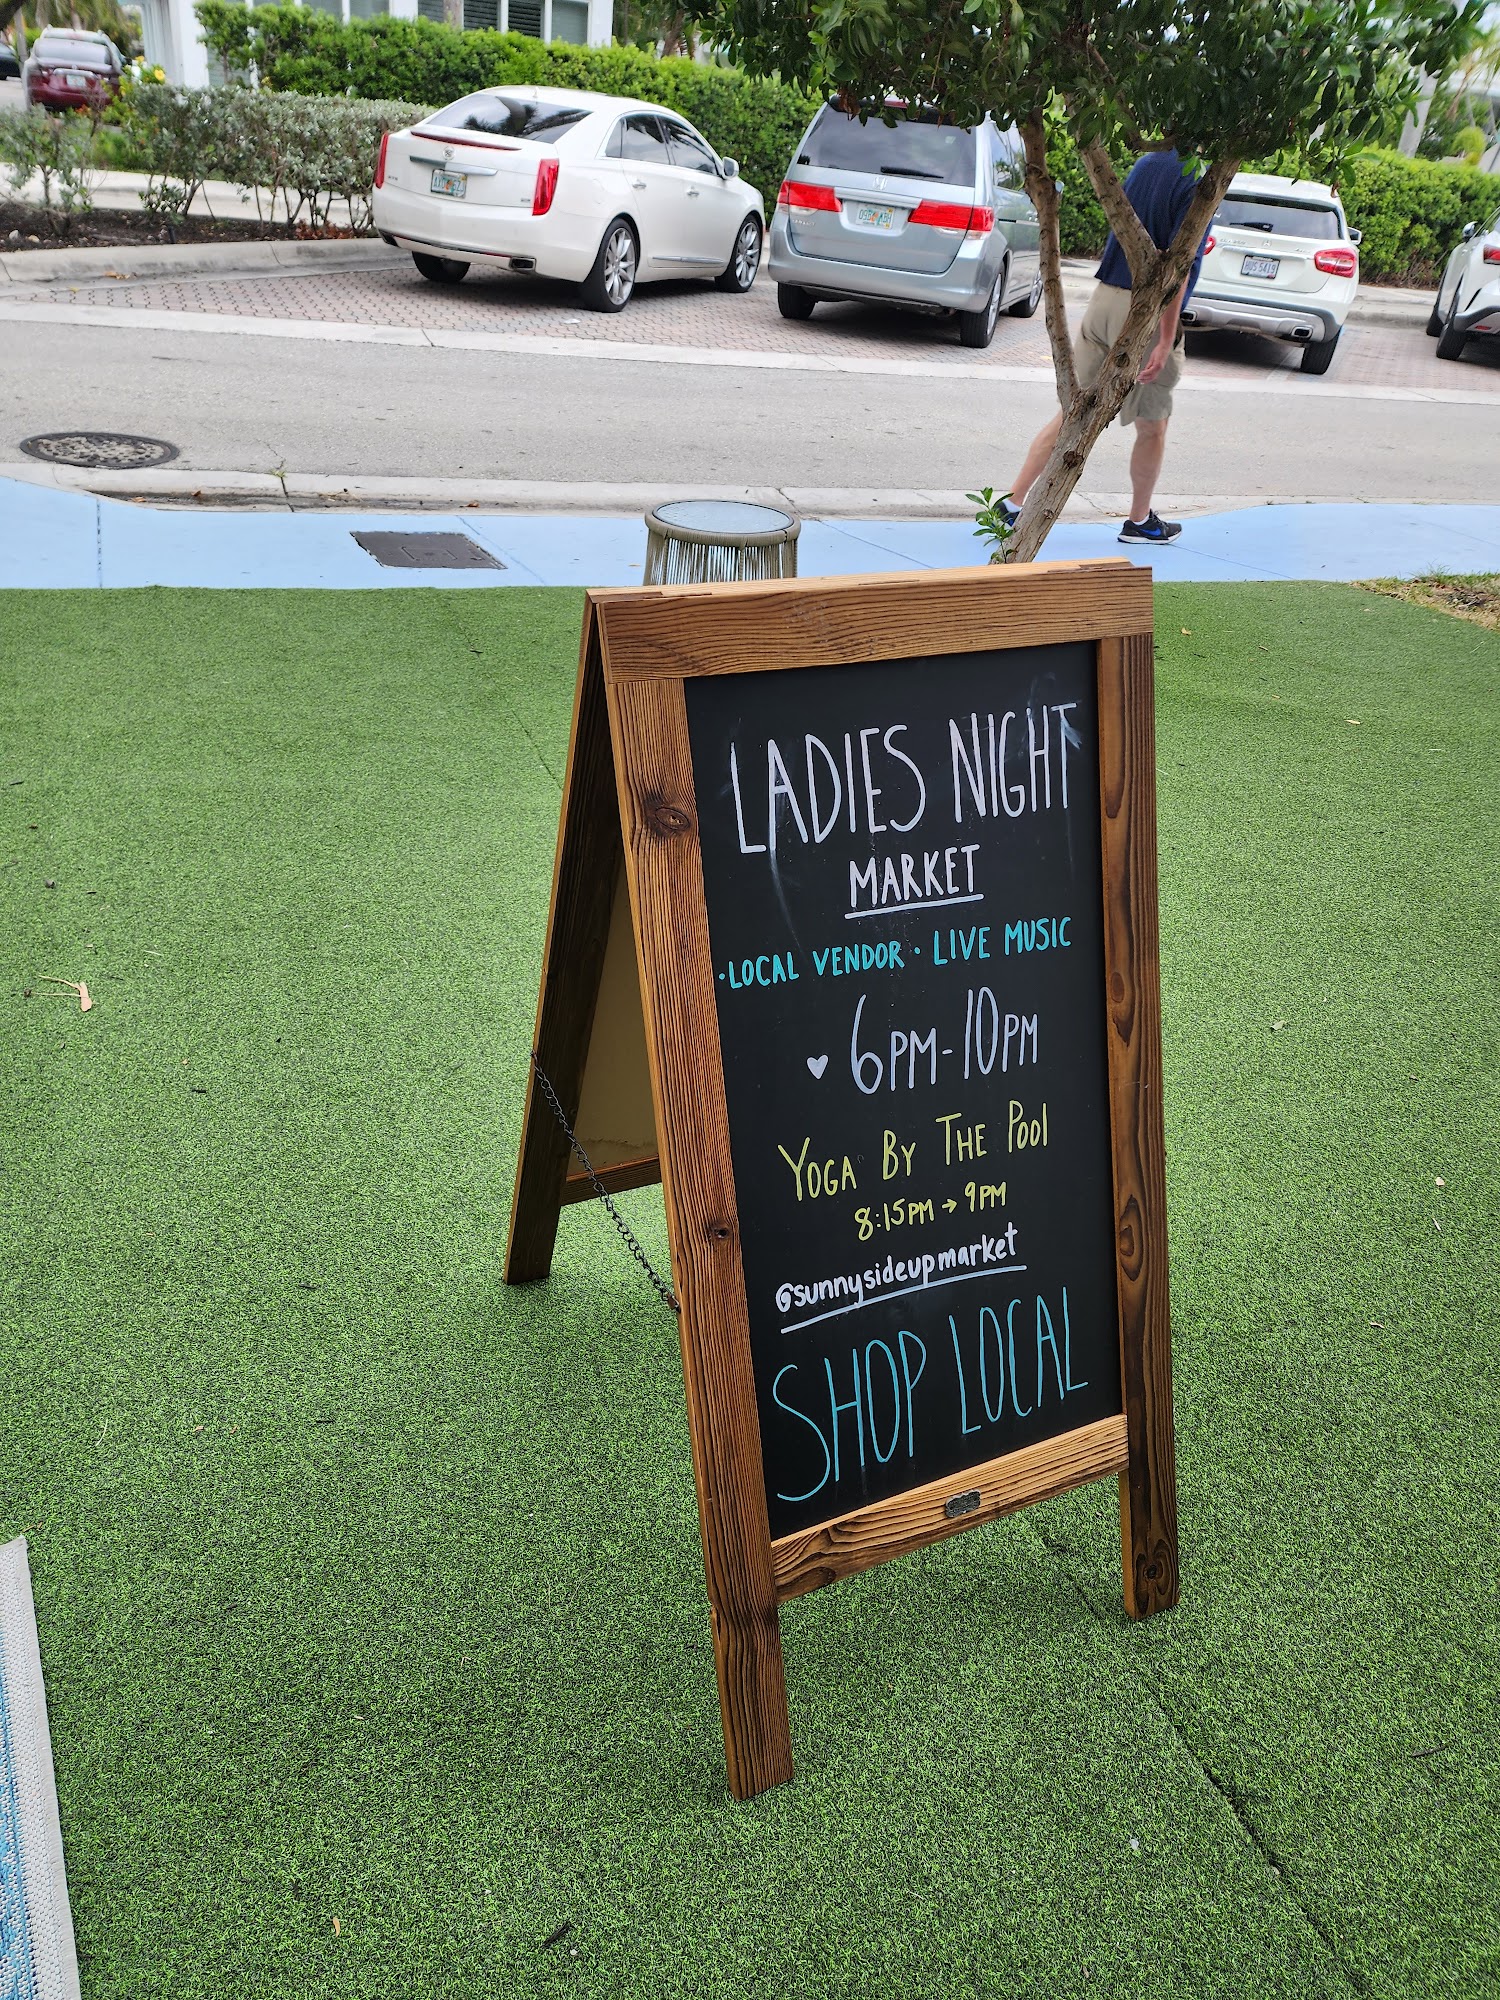 LADIES NIGHT
MARKET
·LOCAL VENDOR · LIVE MUSIC
♥ 6PM-10PM
YOGA BY THE POOL
8:15PM → 9PM
@sunnysideupmarket
SHOP LOCAL